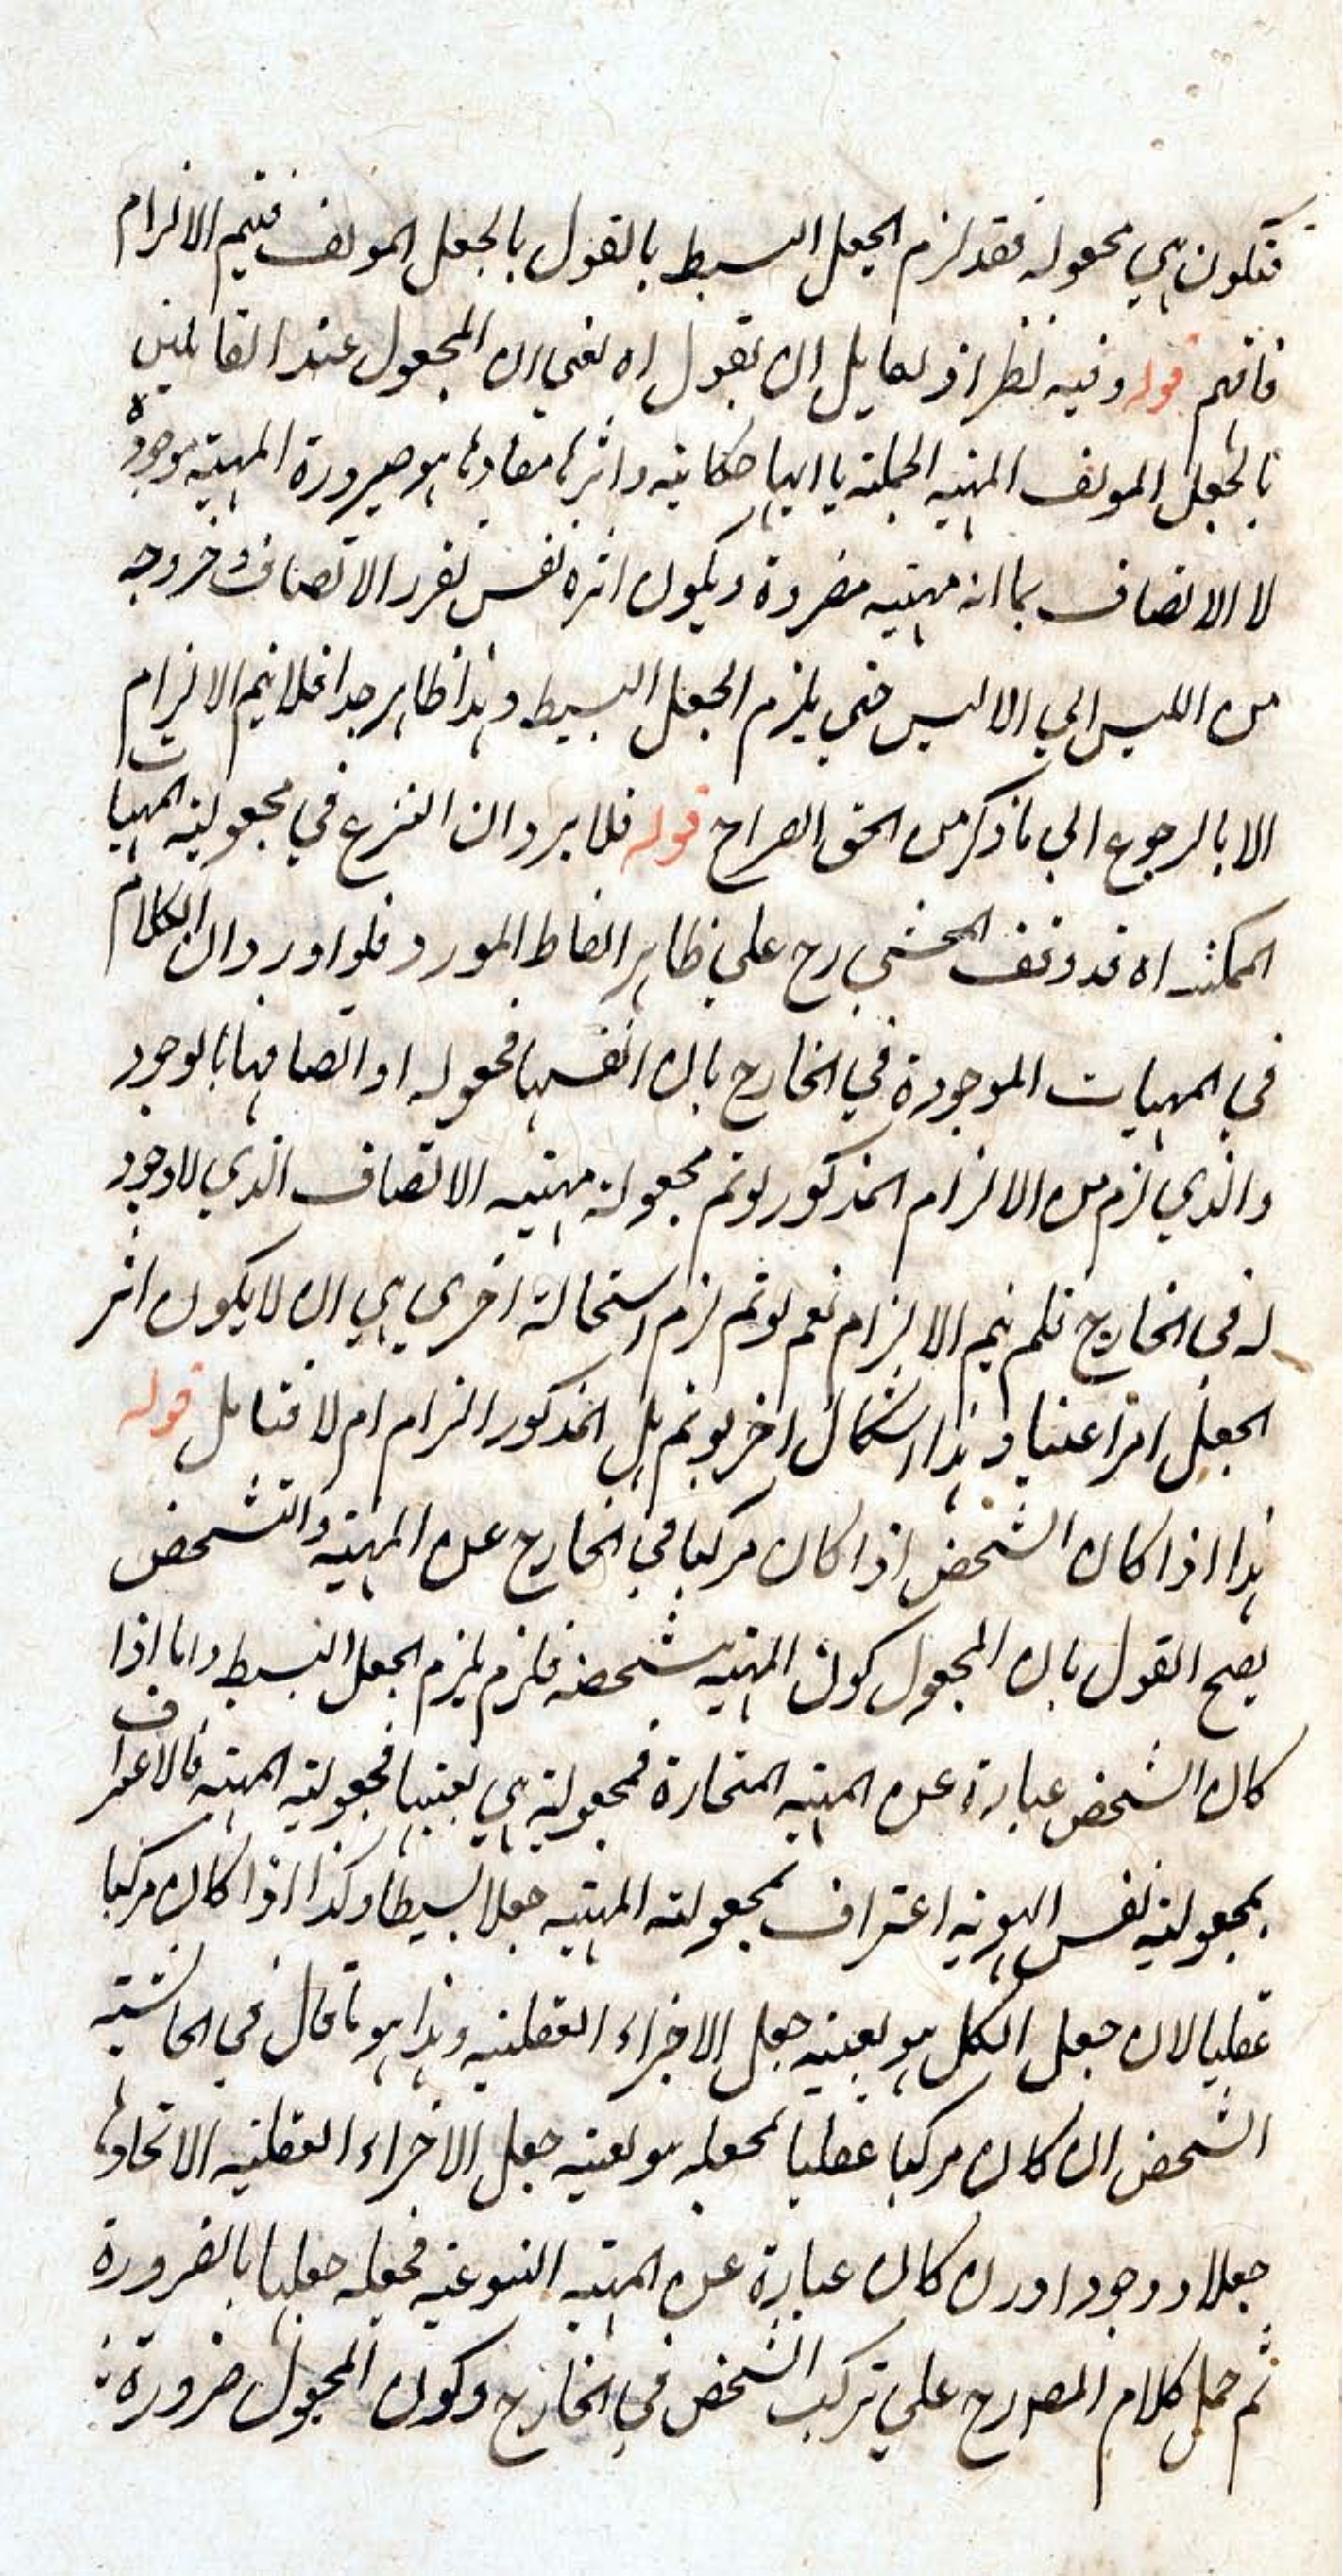 فتكون هي مجعولة فقد لزم الجعل البسيط بالقول بالجعل المولف فيتم الالزام
فافهم قوله وفيه نظر اذ لقايل ان يقول اه يعني ان المجعول عند القايلين
بالجعل المولف الهيئة الحملية يا ايها حكاية واثرها مفادها هو صيرورة المهية موجودة
لا الاتصاف بما انه مهية مفردة ويكون اثره نفس تقرر الاتصاف وخروجه
من الليس الي الاليس حتي يلزم الجعل البسيط وهذا ظاهر جدا فلا يتم الالزام
الا بالرجوع الي ما ذكر من الحق الصراح قوله فلا يرد ان النزع في مجعولية المهيات
الممكنة اه قد وقف المحشي رح علي ظاهر الفاظ المورد فلو اورد ان الكلام
في المهيات الموجودة في الخارج بان انفسها مجعولة او اتصافها بالوجود
والذي لزم من الالزام المذكور لو تم مجعولة مهية الاتصاف الذي لا وجود
له في الخارج فلم يتم الالزام نعم لو تم لزم استحالة اخري هي ان لا يكون اثر
الجعل امرا عينيا وهذا اشكال اخر لو تم بل المذكور الزام ام لا فتامل قوله
هذا اذا كان الشخص اذا كان مركبا في الخارج عن المهية والتشخص
يصح القول بان المجعول كون المهية متشخصة فلزم يلزم الجعل البسيط واما اذا
كان الشخص عبارة عن المهية المنحازة فمجعولية هي بعينها مجعولية المهية فالاعتراف
بمجعولية نفس الهوية اعتراف بمجعولية المهية جعلا بسيطا وكذا اذا كان مركبا
عقليا لان جعل الكل هو بعينه جعل الاجزاء العقلية وهذا هو ما قال في الحاشية
الشخص ان كان مركبا عقليا فجعله هو بعينه جعل الاجزاء العقلية الاتحادها
جعلا ووجودا وان كان عبارة عن المهية النوعية فجعله جعلها بالضرورة
ثم حمل كلام المص رح علي تركب الشخص في الخارج وكون المجعول ضرورة